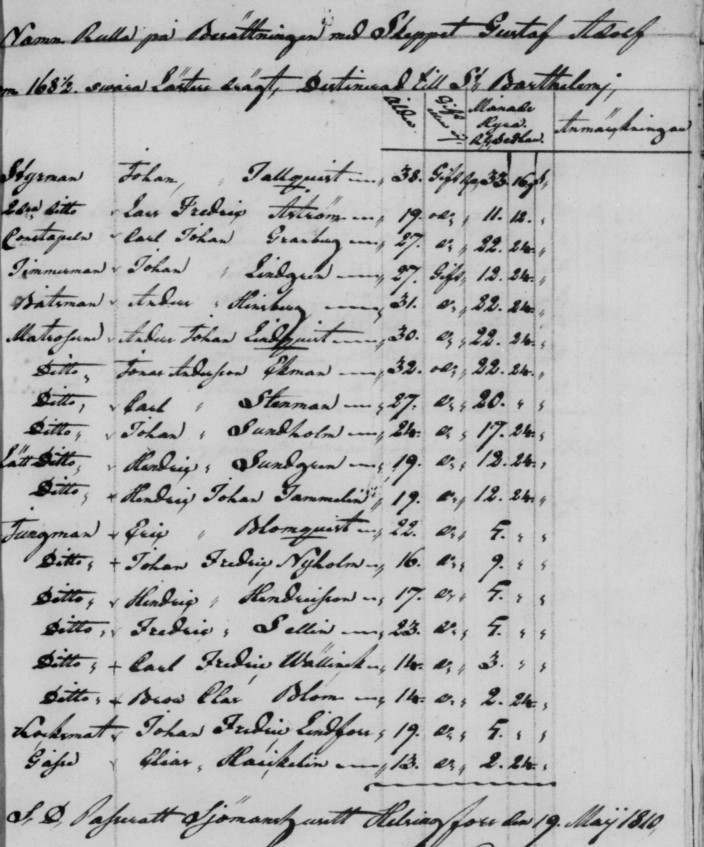 Namn Rulla på Besättningen med Skeppet Gustaf Adolf
om 168½ swåra Läster drägt, Destinerad till St Barthelemj,
Ålder. Gift eller ej. Månads Hyra. Anmärkningar
Styrman Johan, Tallquist 38. Gift 33. 16
2dra Ditto Lars Fredric Åström 19. og 11. 12.
Constapeln Carl Johan Granberg 27. 22. 24.
Timmerman Johan Lindgren 27. Gift 12. 24.
Båtsman Anders 31. 22. 24.
Matroserne Anders Johan Lindquist 30. 22. 24.
Ditto, Jonas Andersson Ekman 32. og 22. 24.
Ditto, Carl Stenman 27. 20.
Ditto, Johan Sundholm 24. 17. 24.
Lätt Ditto, Hendric Sundgren 19. 12. 24.
Ditto, Hendric Johan Tammelin 19. 12. 24.
Jungman Eric Blomquist 22. 5.
Ditto, + Johan Fredric Nyholm 16. 9.
Ditto, Hendric Hendricsson 17. 5.
Ditto, Fredric Sellin 23. 5.
Ditto, + Carl Fredric 14. 3.
Ditto, + Clas Blom 14. 2. 24.
Kocksmat Johan Fredric Lindfors 19. 5.
Gåsse Elias 13. 2. 24.
S. D. Passerat Sjömanshuset Helsingfors den 19. Maij 1810,